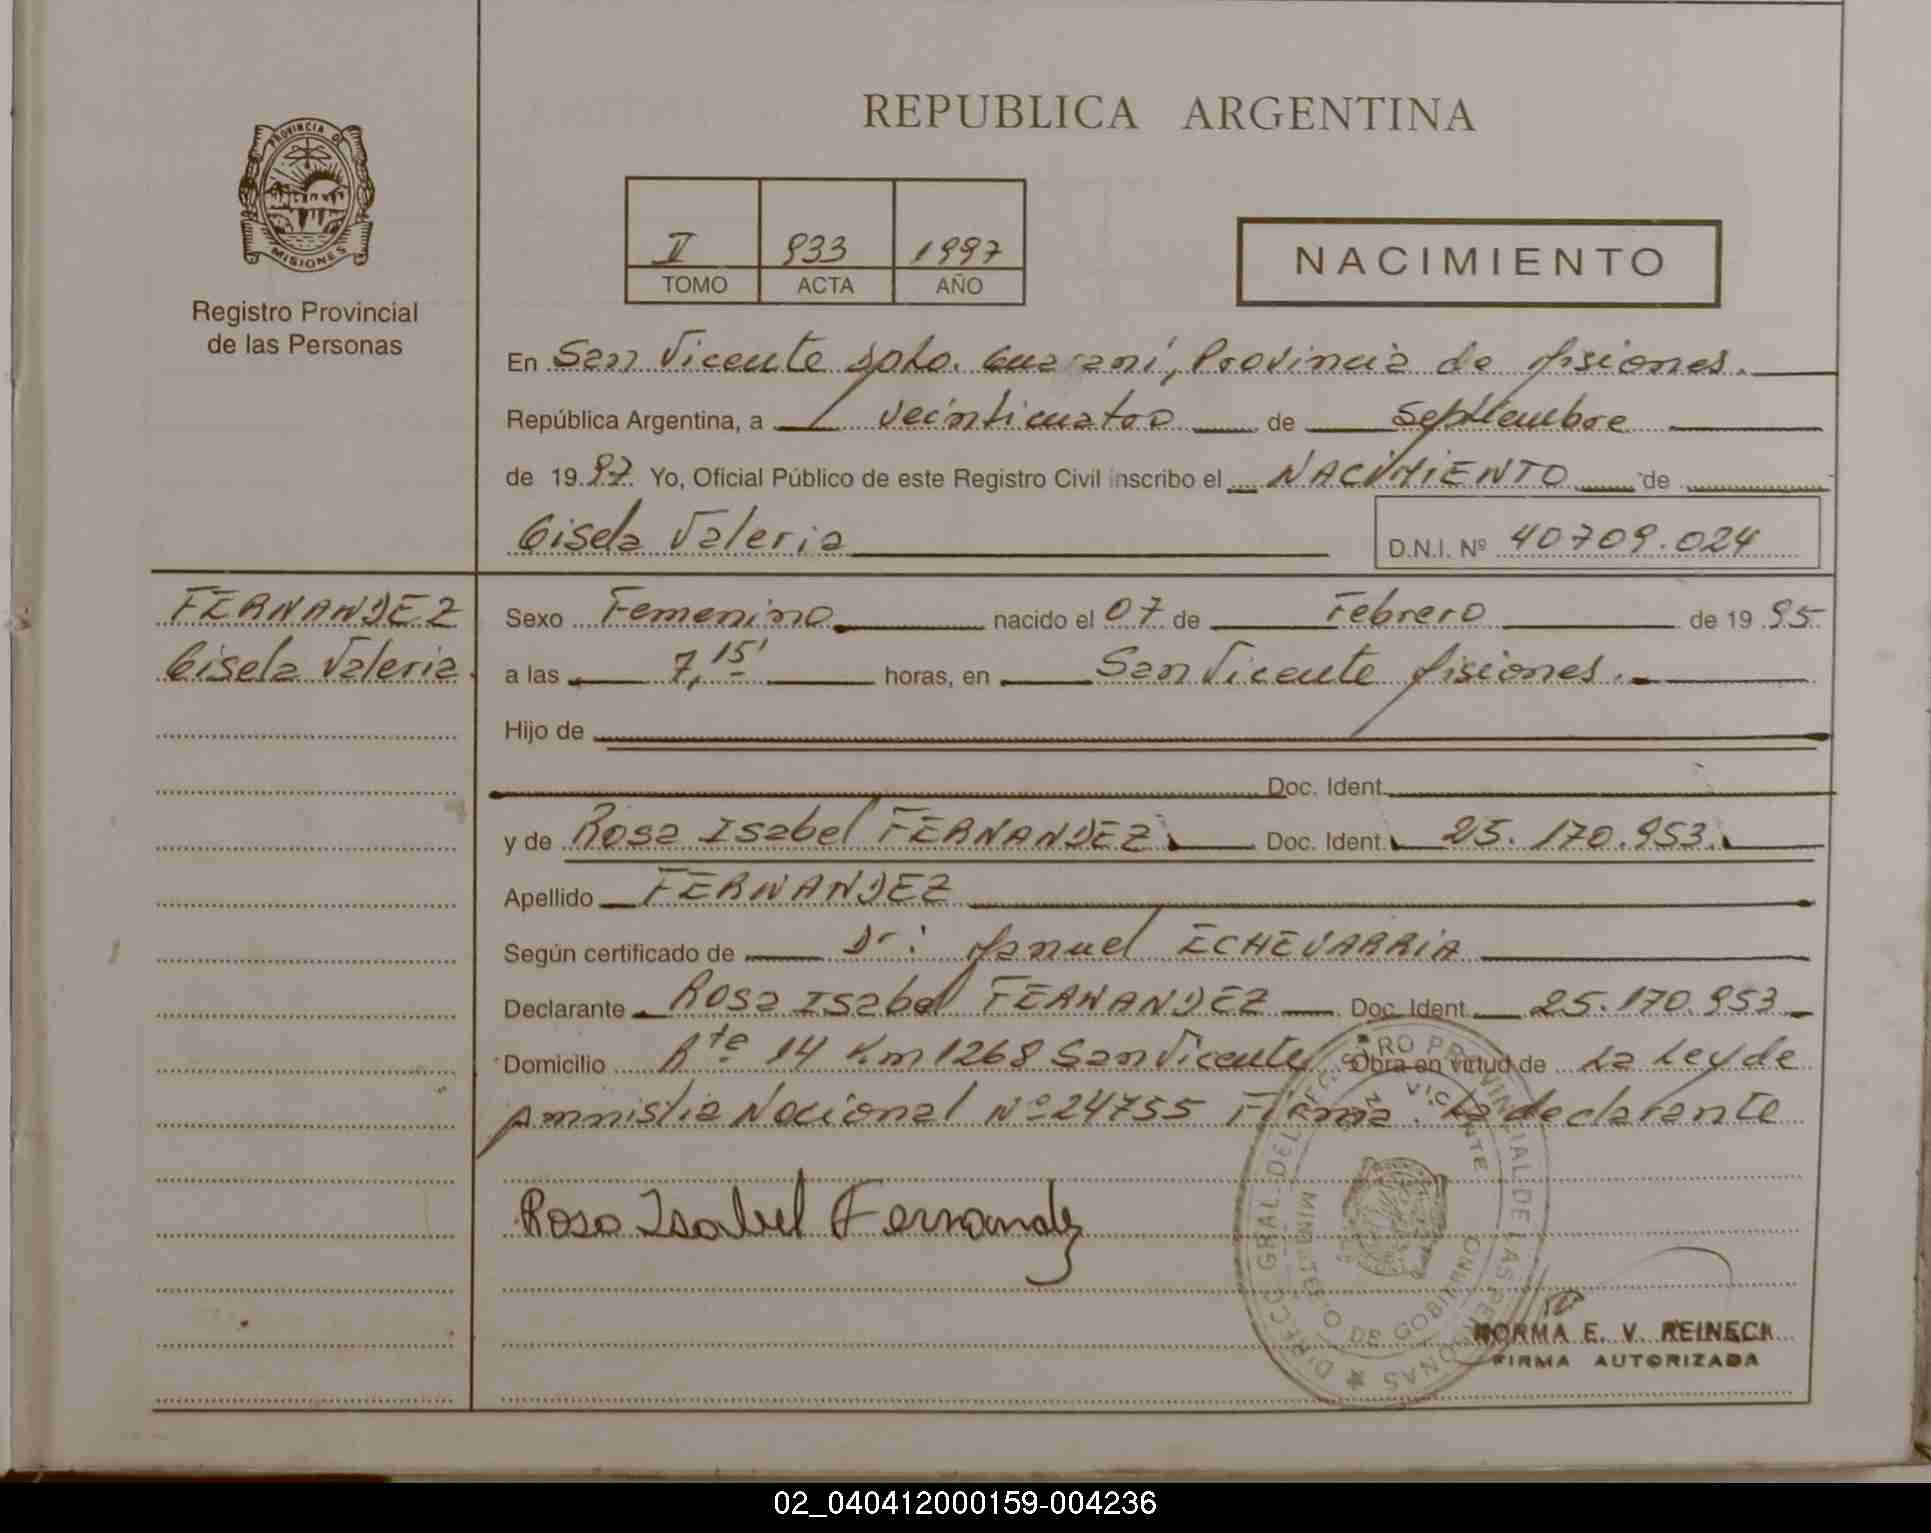 REPUBLICA ARGENTINA
PROVINCIA DE
MISIONES
Registro Provincial
de las Personas
II 933 1997
TOMO ACTA AÑO
NACIMIENTO
En San Vicente Dpto. Guaraní, Provincia de Misiones.
República Argentina, a veinticuatro de Septiembre
de 1997 Yo, Oficial Público de este Registro Civil inscribo el NACIMIENTO de
Gisela Valeria D.N.I. Nº 40709.024
FERNANDEZ
Gisela Valeria.
Sexo Femenino nacido el 07 de Febrero de 1995.
a las 7,15' horas, en San Vicente Misiones.
Hijo de
Doc. Ident.
y de Rosa Isabel FERNANDEZ. Doc. Ident. 25.170.953.
Apellido FERNANDEZ
Según certificado de Dr: Manuel ECHEVARRIA
Declarante Rosa Isabel FERNANDEZ Doc. Ident. 25.170.953
Domicilio Rte 14 Km 1268 San Vicente Obra en virtud de La Ley de
Amnistia Nacional Nº 24755 Firma. La declarante
Rosa Isabel Fernandez
DIRECC. GRAL. DEL REGISTRO PROVINCIAL DE LAS PERSONAS
VICENTE
MINISTERIO DE GOBIERNO
NORMA E. V. REINECK
FIRMA AUTORIZADA
02_040412000159-004236